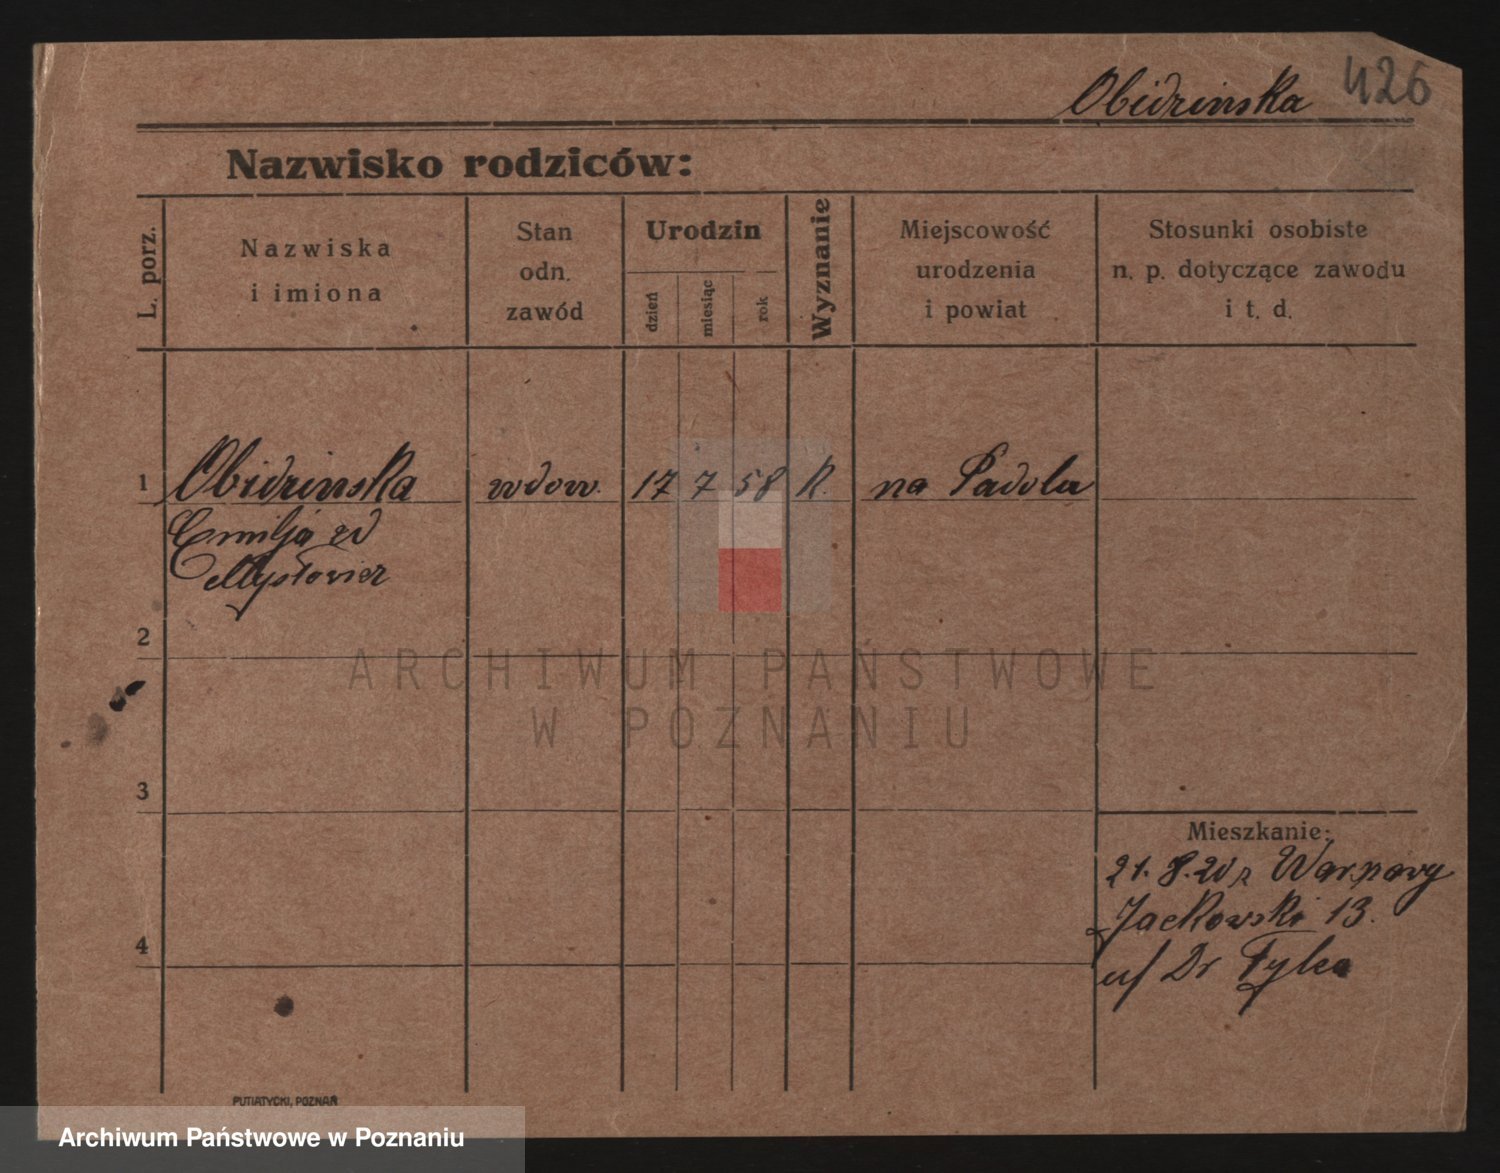 426
Obidzinska
Nazwisko rodziców:
L. porz.
Nazwiska
i imiona
Stan
odn.
zawód
Urodzin
dzień
miesiąc
rok
Wyznanie
Miejscowość
urodzenia
i powiat
Stosunki osobiste
n. p. dotyczące zawodu
i t. d.
1
Obidzinska
wdow.
17
7
58
K.
na Padolu
Emilja zd
Mysłowicz
2
ARCHIWUM PAŃSTWOWE
W POZNANIU
3
Mieszkanie:
21.8.20 z Warszawy
Jackowski 13.
4
u/ Dr
PUTIATYCKI, POZNAŃ
Archiwum Państwowe w Poznaniu